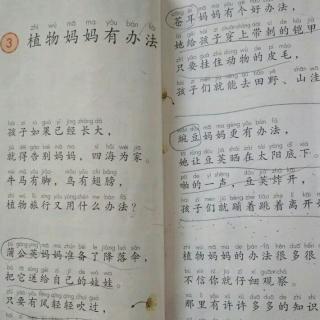 3 植物妈妈有办法
孩子如果已经长大，
就得告别妈妈，四海为家。
牛马有脚，鸟有翅膀，
植物旅行又用什么办法？
蒲公英妈妈准备了降落伞，
把它送给自己的娃娃。
只要有风轻轻吹过，
苍耳妈妈有个好办法，
她给孩子穿上带刺的铠甲
只要挂住动物的皮毛，
孩子们就能去田野、山洼
豌豆妈妈更有办法，
她让豆荚晒在太阳底下。
啪的一声，豆荚炸开，
孩子们就蹦着跳着离开
植物妈妈的办法很多很
不信你就仔细观察。
那里有许许多多的知识